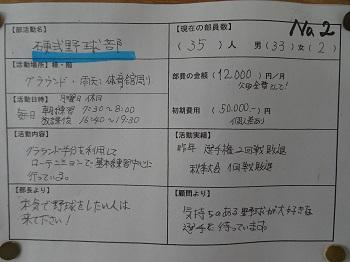 No2
【部活動名】
硬式野球部
【現在の部員数】
(35)人 男(33)女(2)
【活動場所】棟・階
グラウンド・雨天：体育館周り
部費の金額(12,000)円/月
【活動日時】月曜日 休日
毎日 朝練習 7:30~8:00
放課後 16:40~19:30
初期費用(50,000-)円
個人差あり
【活動内容】
グラウンド半分を利用して
ローテーションで基本練習中心に
行っている。
【活動実績】
昨年 選手権 2回戦敗退
秋季大会 1回戦敗退
【部長より】
本気で野球をしたい人は
来て下さい!
【顧問より】
気持ちのある野球が大好きな
選手を待っています。